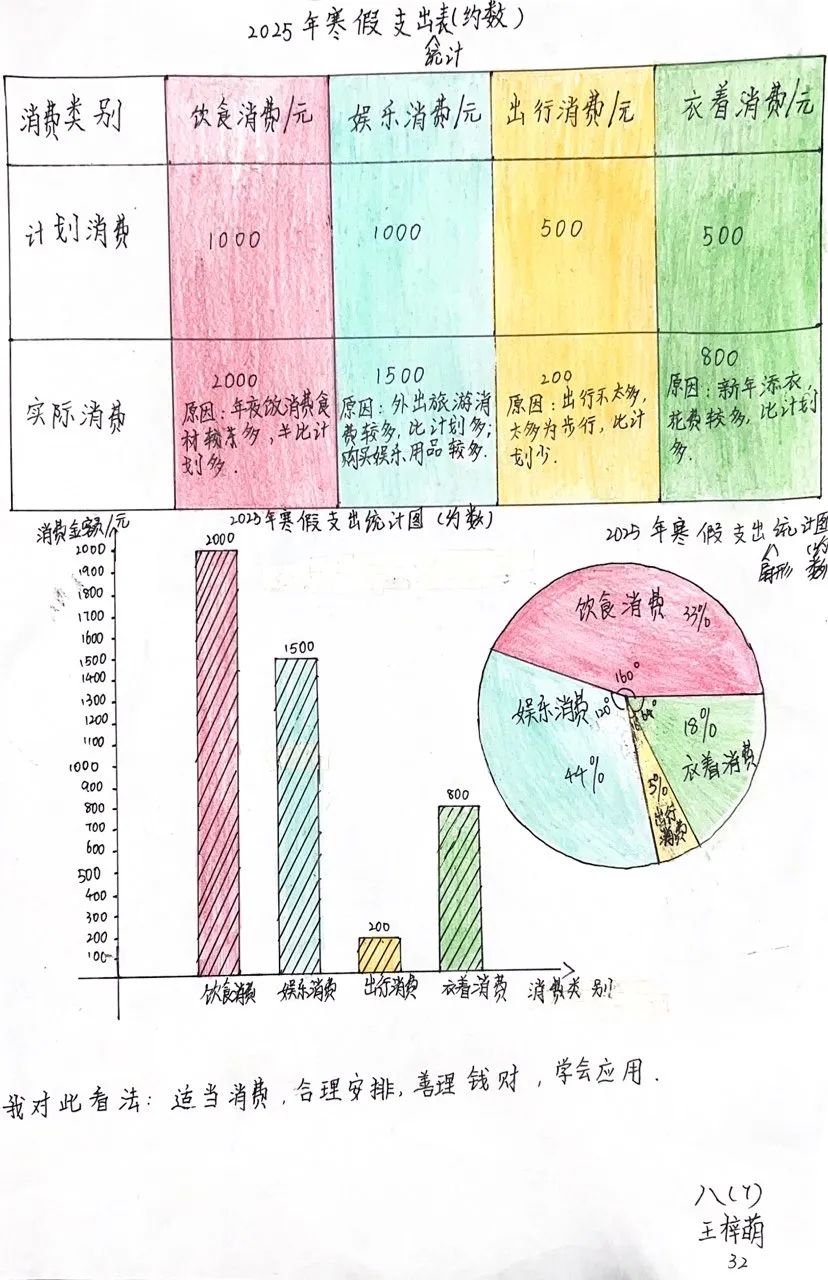 2025年寒假支出表(约数)
统计
消费类别 饮食消费/元 娱乐消费/元 出行消费/元 衣着消费/元
计划消费 1000 1000 500 500
实际消费
2000
原因:年夜饭消费食
多,比计
划多.
1500
原因:外出旅游消
费较多,比计划多;
购买娱乐用品较多.
200
原因:出行不太多,
大多为步行,比计
划少.
800
原因:新年添衣,
花费较多,比计划
多.
消费金额/元
2025年寒假支出统计图(约数)
2000
1900
1800
1700
1600
1500
1400
1300
1200
1100
1000
900
800
700
600
500
400
300
200
100
2000
1500
200
800
饮食消费 娱乐消费 出行消费 衣着消费 消费类别
2025年寒假支出统计图
扇形
(约数
饮食消费 33%
160°
娱乐消费 120°
44%
64°
18%
衣着消费
5%
出行
消费
我对此看法:适当消费,合理安排,善理钱财,学会应用.
八(7)
王梓萌
32